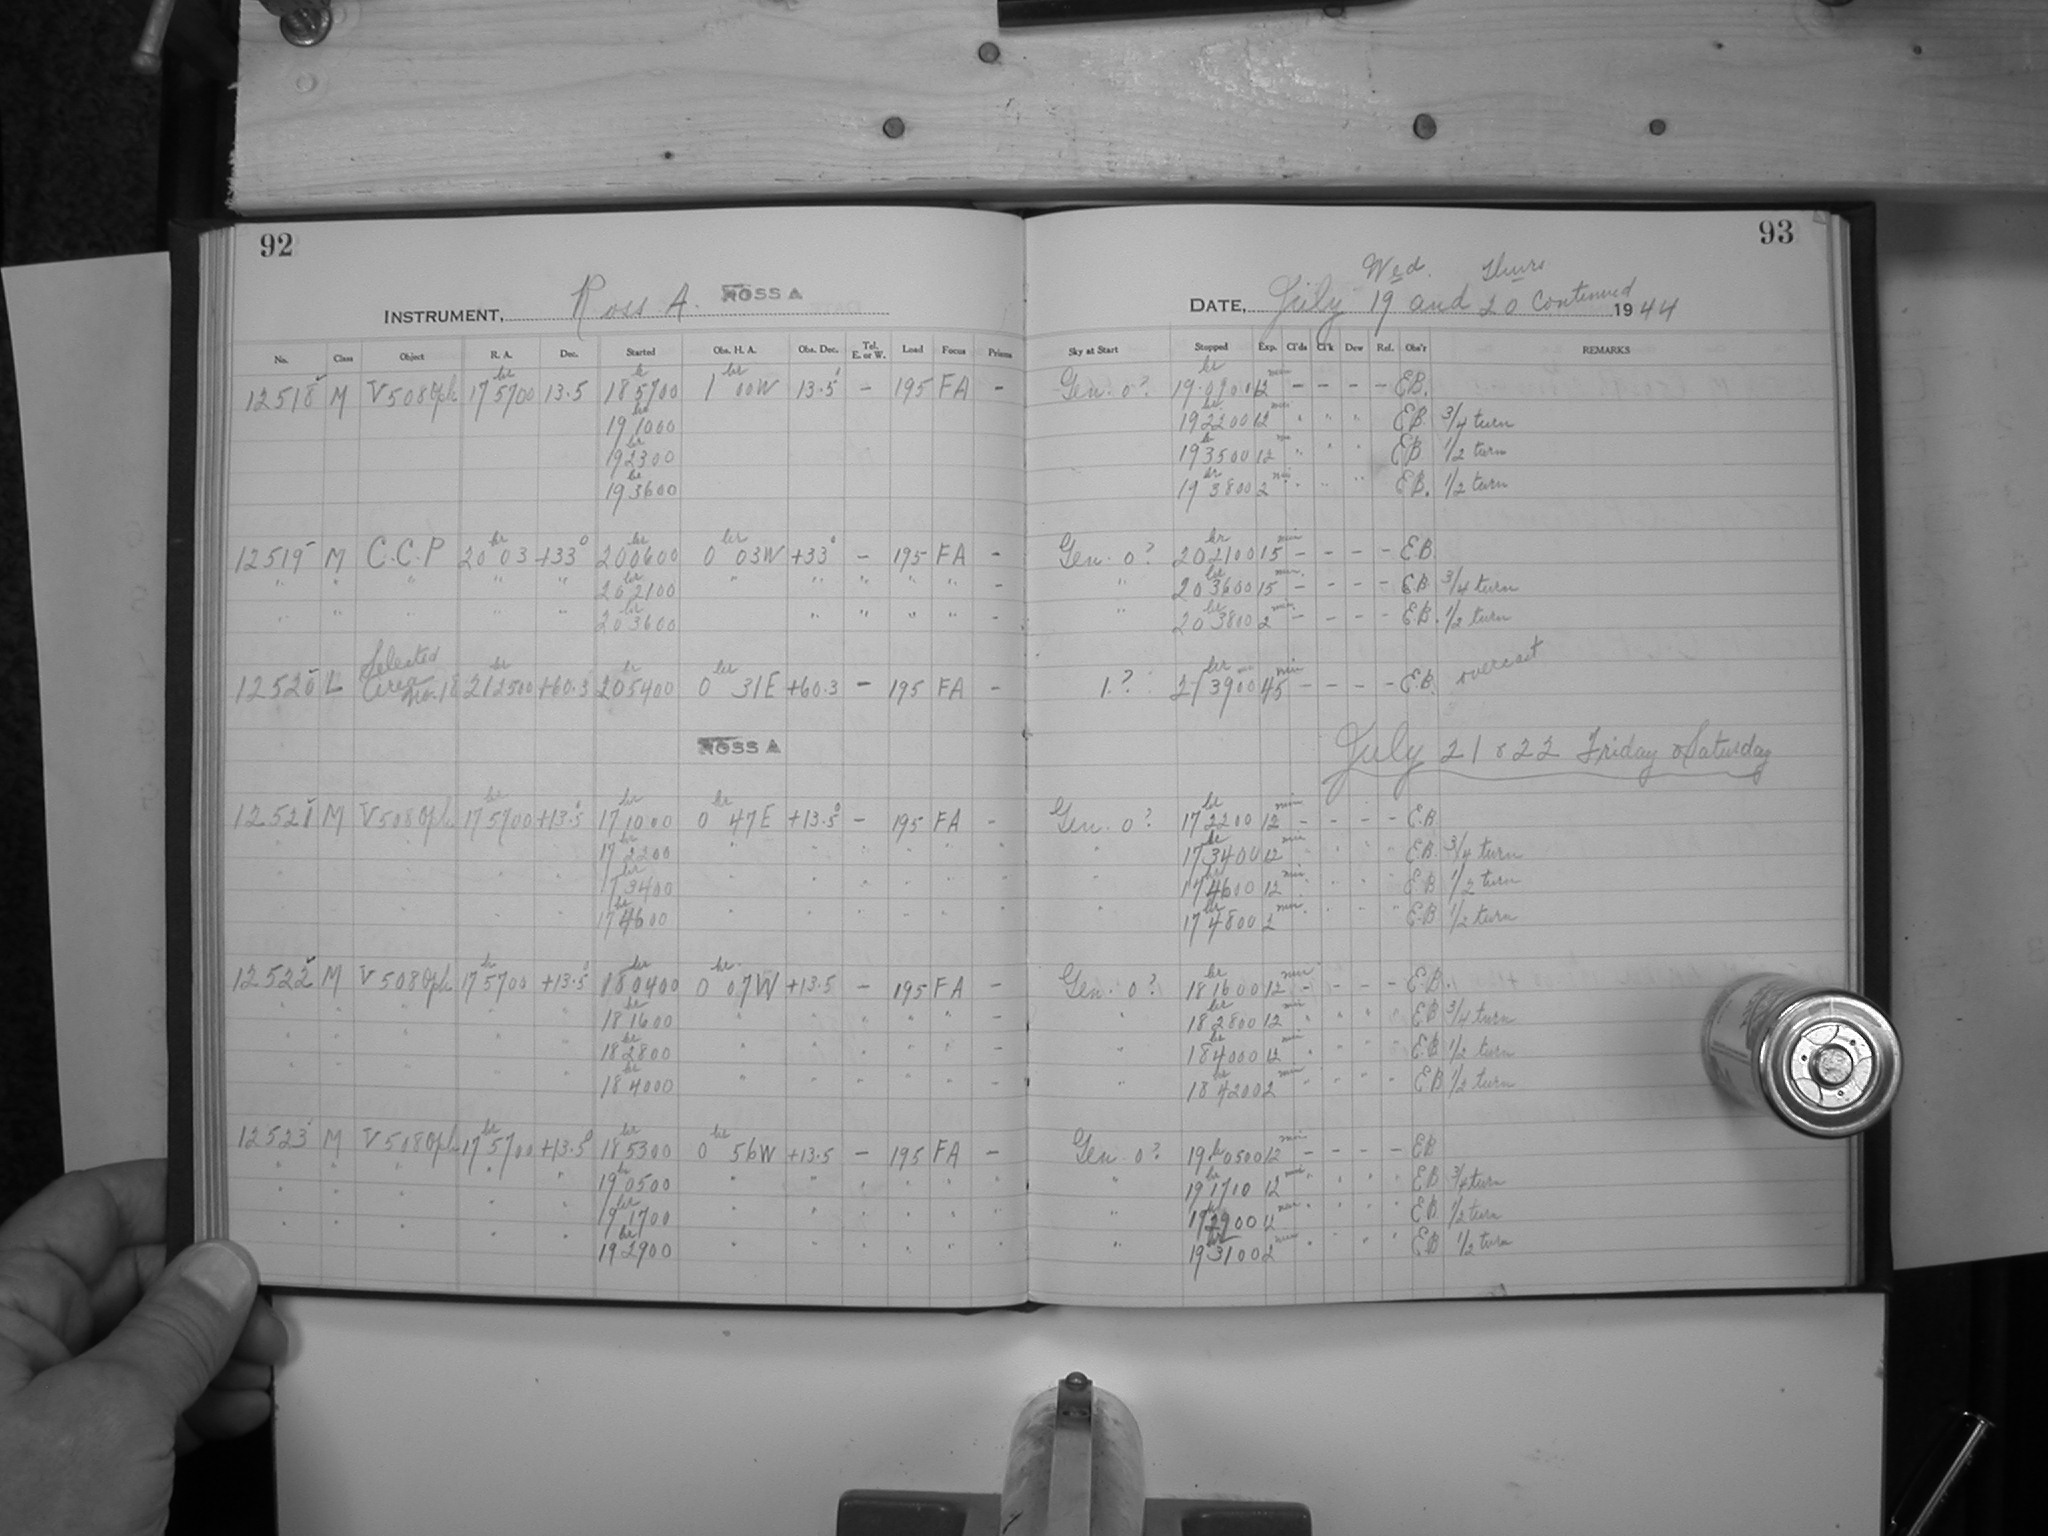 92
INSTRUMENT, Ross A. ROSS A
No. Class Object R. A. Dec. Started Obs. H. A. Obs. Dec. Tel. E. or W. Load Focus Prisms
12518 M V508Oph 17hr5700 13.5 18h5700 1hr00W 13.5° - 195 FA -
19hr1000
19hr2300
19hr3600
12519 M C.C.P 20hr03 +33° 20hr0600 0hr03W +33° - 195 FA -
" " " " " 20hr2100 " " " " " -
" " " " " 20hr3600 " " " " -
12520 L Selected Area No. 18 21hr2500 +60.3 20hr5400 0hr31E +60.3 - 195 FA -
ROSS A
12521 M V508Oph 17hr5700 +13.5° 17hr1000 0hr47E +13.5° - 195 FA -
17hr2200
17hr3400
17hr4600
12522 M V508Oph 17hr5700 +13.5° 18hr0400 0hr07W +13.5 - 195 FA -
18hr1600
18hr2800
18hr4000
12523 M V508Oph 17hr5700 +13.5° 18hr5300 0hr56W +13.5 - 195 FA -
19hr0500
19hr1700
19hr2900
93
Wed. Thurs.
DATE, July 19 and 20 Continued 1944
Sky at Start Stopped Exp. Cl'ds Cl'k Dew Ref. Obs'r REMARKS
Gen. 0? 19hr0901 12min - - - - EB.
19hr2200 12min " " " EB 3/4 turn
19hr3500 12min " " " EB 1/2 turn
19hr3800 2min " " " EB. 1/2 turn
Gen. 0? 20hr2100 15min - - - - EB
" 20hr3600 15min - - - - EB 3/4 turn
" 20hr3800 2min - - - - EB. 1/2 turn
1.? 21hr3900 45min - - - - EB. overcast
July 21 & 22 Friday & Saturday
Gen. 0? 17hr2200 12min - - - - EB
" 17hr3400 12min EB 3/4 turn
" 17hr4600 12min EB 1/2 turn
" 17hr4800 2min EB 1/2 turn
Gen. 0? 18hr1600 12min - - - - EB.
" 18hr2800 12min EB 3/4 turn
" 18hr4000 12min EB 1/2 turn
" 18hr4200 2min EB 1/2 turn
Gen. 0? 19hr0500 12min - - - - EB
" 19hr1710 12min EB 3/4 turn
" 19hr2900 EB 1/2 turn
" 19hr3100 2min EB 1/2 turn